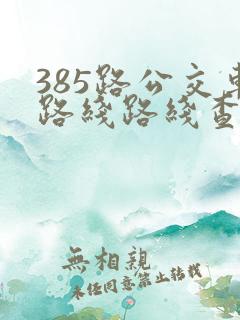 385路公交车
路线路线查
無相親
未經同意禁止轉載